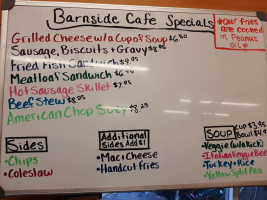 Barnside Cafe Specials
*Our Fries are cooked in Peanut oil*
Grilled Cheese w/a Cup of Soup $6.50
Sausage, Biscuits + Gravy $8.95
Fried Fish Sandwich $9.95
Meatloaf Sandwich $6.95
Hot Sausage Skillet $7.95
Beef Stew $8.95
American Chop Suey $8.25
Sides
•Chips
•Coleslaw
Additional Sides Add $1
•Mac+Cheese
•Handcut Fries
SOUP CUP $3.95
Bowl $4.95
•Veggie (w/a Kick)
•Italian Veggie Beef
•Turkey + Rice
•Yellow Split Pea